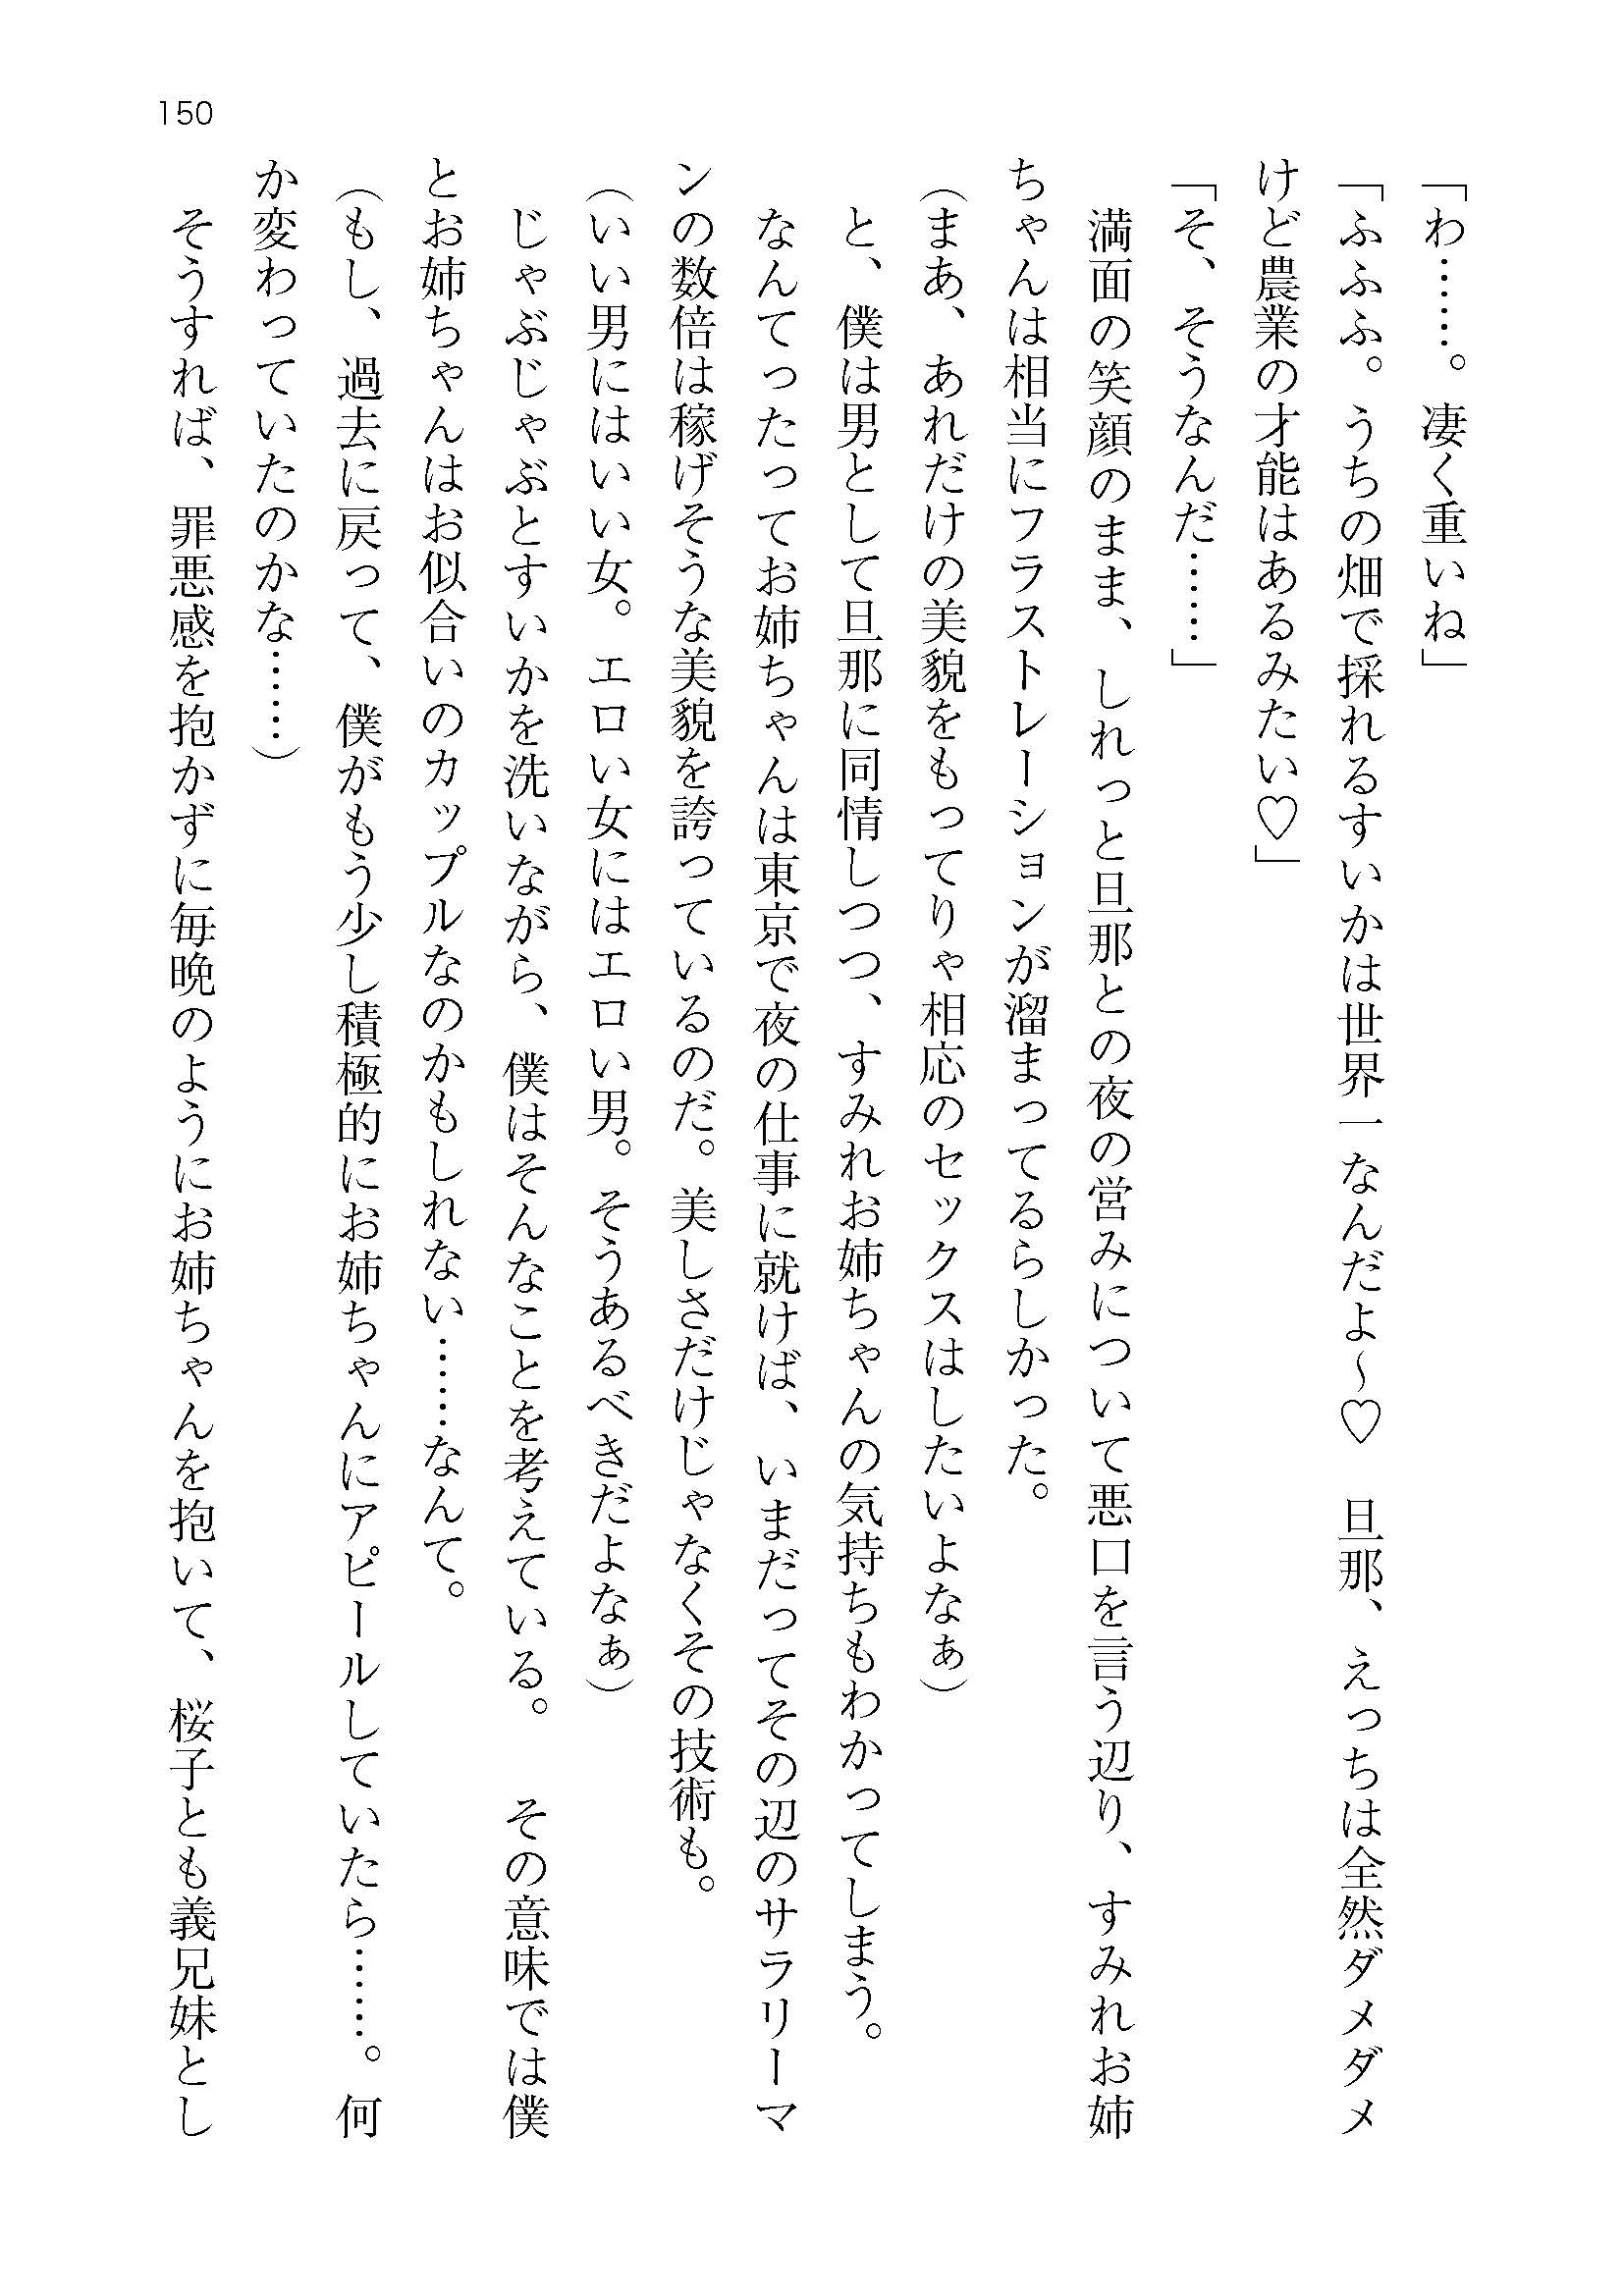 150
「わ……。凄く重いね」
「ふふふ。うちの畑で採れるすいかは世界一なんだよ～♡　旦那、えっちは全然ダメダメ
けど農業の才能はあるみたい♡」
「そ、そうなんだ……」
　満面の笑顔のまま、しれっと旦那との夜の営みについて悪口を言う辺り、すみれお姉
ちゃんは相当にフラストレーションが溜まってるらしかった。
（まあ、あれだけの美貌をもってりゃ相応のセックスはしたいよなぁ）
　と、僕は男として旦那に同情しつつ、すみれお姉ちゃんの気持ちもわかってしまう。
　なんてったってお姉ちゃんは東京で夜の仕事に就けば、いまだってその辺のサラリーマ
ンの数倍は稼げそうな美貌を誇っているのだ。美しさだけじゃなくその技術も。
（いい男にはいい女。エロい女にはエロい男。そうあるべきだよなぁ）
　じゃぶじゃぶとすいかを洗いながら、僕はそんなことを考えている。　その意味では僕
とお姉ちゃんはお似合いのカップルなのかもしれない……なんて。
（もし、過去に戻って、僕がもう少し積極的にお姉ちゃんにアピールしていたら……。何
か変わっていたのかな……）
　そうすれば、罪悪感を抱かずに毎晩のようにお姉ちゃんを抱いて、桜子とも義兄妹とし